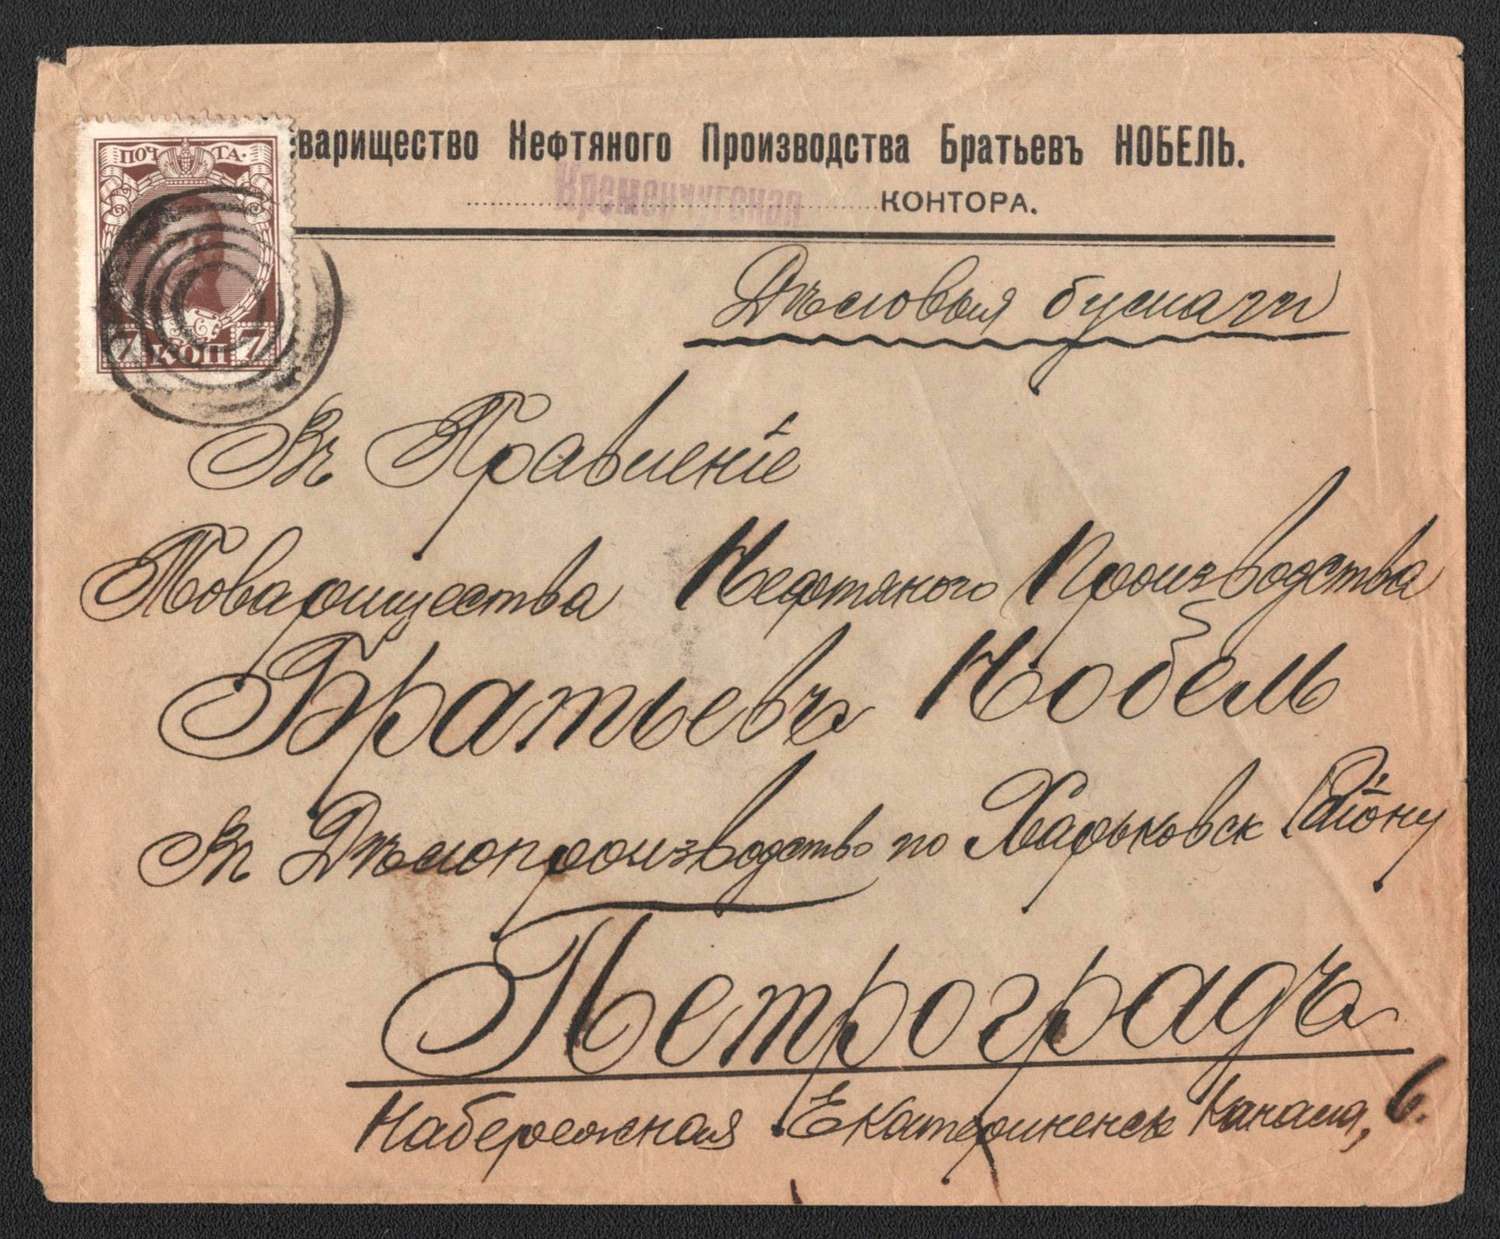 ПОЧТА.
7 КОП 7
Товарищество Нефтяного Производства Братьевъ НОБЕЛЬ.
Кременчугская КОНТОРА.
Дѣловыя бумаги
Въ Правленіе
Товарищества Нефтяного Производства
Братьевъ Нобель
Въ Дѣлопроизводство по Харьковск Району
Петроградъ
Набережная Екатериненск канала, 6.